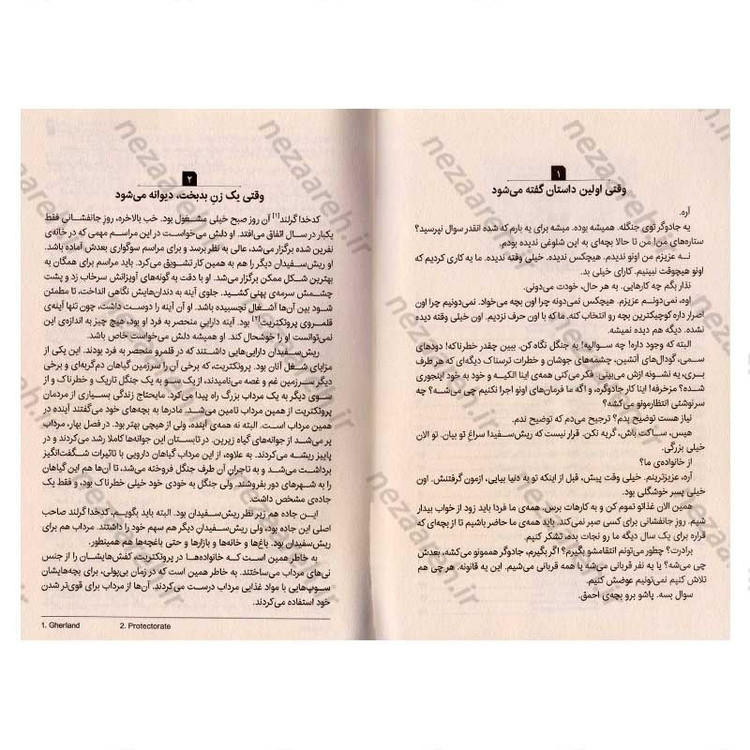 ۱
وقتی اولین داستان گفته می‌شود
آره.
یه جادوگر توی جنگله. همیشه بوده. میشه برای یه بارم که شده انقدر سوال نپرسید؟
ستاره‌های من! من تا حالا بچه‌ای به این شلوغی ندیده بودم.
نه عزیزم من اونو ندیدم. هیچکس ندیده. خیلی وقته ندیده. ما یه کاری کردیم که
اونو هیچوقت نبینیم. کارای خیلی بد.
نذار بگم چه کارهایی. به هر حال، خودت می‌دونی.
اوه، نمی‌دونم عزیزم. هیچکس نمی‌دونه چرا اون بچه می‌خواد. نمی‌دونیم چرا اون
اصرار داره کوچیکترین بچه رو انتخاب کنه. ما که با اون حرف نزدیم. اون خیلی وقته دیده
نشده. دیگه هم دیده نمیشه.
البته که وجود داره! چه سوالیه! به جنگل نگاه کن. ببین چقدر خطرناکه! دودهای
سمی، گودال‌های آتشین، چشمه‌های جوشان و خطرات ترسناک دیگه‌ای که هر طرف
بری، یه نشونه ازش می‌بینی. فکر می‌کنی همه‌ی اینا الکیه و خود به خود اینجوری
شده؟ مزخرفه! اینا کار جادوگره، و اگه ما فرمان‌های اونو اجرا نکنیم چی می‌شه؟ چه
سرنوشتی انتظارمونو می‌کشه؟
نیاز هست توضیح بدم؟ ترجیح می‌دم که توضیح ندم.
هیس، ساکت باش، گریه نکن. قرار نیست که ریش‌سفیدا سراغ تو بیان. تو الان
خیلی بزرگی.
از خانواده‌ی ما؟
آره، عزیزترینم. خیلی وقت پیش، قبل از اینکه تو به دنیا بیایی، ازمون گرفتنش. اون
خیلی پسر خوشگلی بود.
همین الان غذاتو تموم کن و به کارهات برس. همه‌ی ما فردا باید زود از خواب بیدار
شیم. روز جانفشانی برای کسی صبر نمی‌کند. باید همه‌ی ما حاضر باشیم تا از بچه‌ای که
قراره برای یک سال دیگه ما رو نجات بده، تشکر کنیم.
برادرت؟ چطور می‌تونم انتقامشو بگیرم؟ اگر بگیرم، جادوگر هممونو می‌کشه، بعدش
چی می‌شه؟ یا یه نفر قربانی می‌شه یا همه قربانی می‌شیم. این یه قانونه. هر چی هم
تلاش کنیم نمی‌تونیم عوضش کنیم.
سوال بسه. پاشو برو بچه‌ی احمق.
۲
وقتی یک زنِ بدبخت، دیوانه می‌شود
کدخدا گرلند[۱] آن روز صبح خیلی مشغول بود. خب بالاخره، روز جانفشانی فقط
یکبار در سال اتفاق می‌افتد. او دلش می‌خواست در این مراسم مهمی که در خانه‌ی
نفرین شده برگزار می‌شد، عالی به نظر برسد و برای مراسم سوگواری بعدش آماده باشد.
او ریش‌سفیدان دیگر را هم به همین کار تشویق می‌کرد. باید مراسم برای همگان به
بهترین شکل ممکن برگزار می‌شد. او با دقت به گونه‌های آویزانش سرخاب زد و پشت
چشمش سرمه‌ی پهنی کشید. جلوی آینه به دندان‌هایش نگاهی انداخت، تا مطمئن
شود بین آن‌ها آشغال نچسبیده باشد. او آن آینه را دوست داشت، چون تنها آینه‌ی
قلمروی پروتکتریت[۲] بود. آینه داراییِ منحصر به فرد او بود، هیچ چیز به اندازه‌ی این
نمی‌توانست او را خوشحال کند. او همیشه دلش می‌خواست خاص باشد.
ریش‌سفیدان دارایی‌هایی داشتند که در قلمرو منحصر به فرد بودند. این یکی از
مزایای شغل آنان بود. پروتکتریت، که برخی آن را سرزمین گیاهان دم‌گربه‌ای و برخی
دیگر سرزمین غم و غصه می‌نامیدند، از یک سو به یک جنگل تاریک و خطرناک و از
سوی دیگر به یک مرداب بزرگ راه پیدا می‌کرد. مایحتاج زندگی بسیاری از مردمان
پروتکتریت از همین مرداب تامین می‌شد. مادرها به بچه‌های خود می‌گفتند آینده در
همین مرداب است. البته نه همه‌ی آینده، ولی از هیچی بهتر بود. در فصل بهار، مرداب
پر می‌شد از جوانه‌های گیاه زیرین. در تابستان این جوانه‌ها کاملا رشد می‌کردند و در
پاییز ریشه می‌کردند. به علاوه، از این مرداب گیاهان دارویی با تاثیرات شگفت‌انگیز
برداشت می‌شد و به تاجرانِ آن طرف جنگل فروخته می‌شد، تا آن‌ها هم این گیاهان
را به شهرهای دور بفروشند. ولی جنگل به خودی خود خیلی خطرناک بود، و فقط یک
جاده‌ی مشخص داشت.
این جاده هم زیر نظر ریش‌سفیدان بود. البته باید بگویم، کدخدا گرلند صاحب
اصلی این جاده بود، ولی ریش‌سفیدانِ دیگر هم سهم خود را داشتند. مرداب هم برای
ریش‌سفیدان بود. باغ‌ها و خانه‌ها و بازارها و حتی باغچه‌ها هم همینطور.
به خاطر همین است که خانواده‌ها در پروتکتریت، کفش‌هایشان را از جنس
نی‌های مرداب می‌ساختند. به خاطر همین است که در زمان بی‌پولی، برای بچه‌هایشان
سوپ‌هایی با مواد غذایی مرداب درست می‌کردند. آن‌ها از مرداب برای قوی‌تر شدن
خود استفاده می‌کردند.
1. Gherland 2. Protectorate
nezaareh.ir